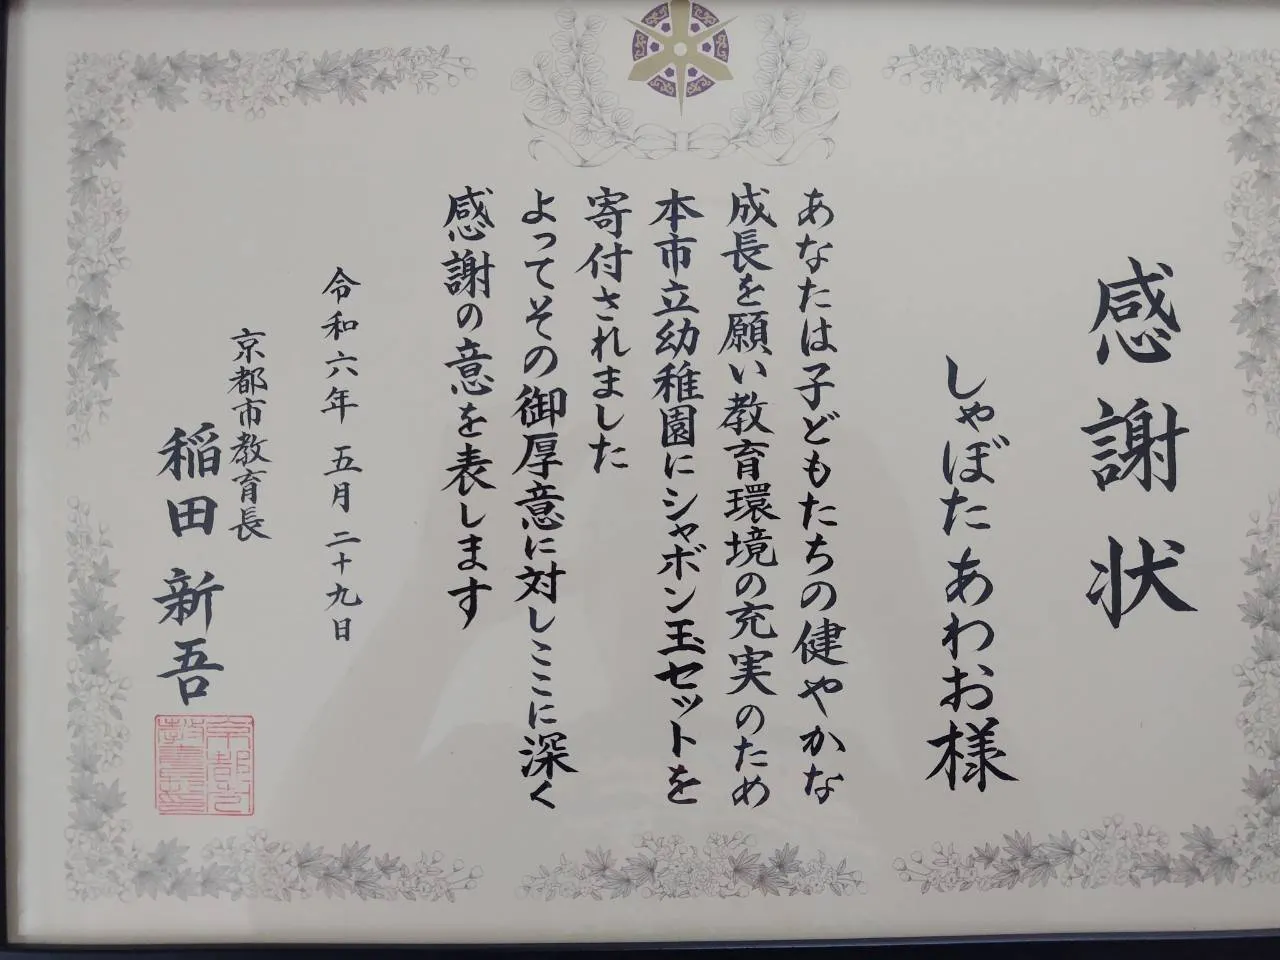 感謝状
しゃぼたあわお様
あなたは子どもたちの健やかな
成長を願い教育環境の充実のため
本市立幼稚園にシャボン玉セットを
寄付されました
よってその御厚意に対しここに深く
感謝の意を表します
令和六年 五月 二十九日
京都市教育長
稲田 新吾